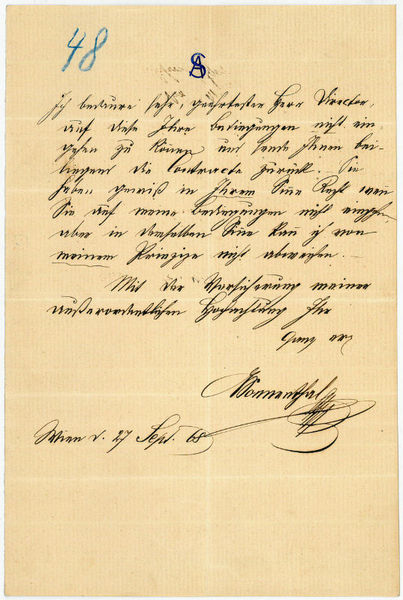 48
AS
Ich bedaure sehr, geehrtester Herr Director,
auf diese Ihre Bedingungen nicht ein-
gehen zu können und sende Ihnen bei-
liegend die Contracte zurück. Sie
haben gewiß in Ihrem Sinne Recht wenn
Sie auf meine Bedingungen nicht eingehen,
aber in demselben Sinne kann ich von
meinem Prinzipe nicht abweichen.
Mit der Versicherung meiner
außerordentlichen Hochachtung Ihr
Ganz erg
Sonnenthal
Wien d. 27 Sept. 68